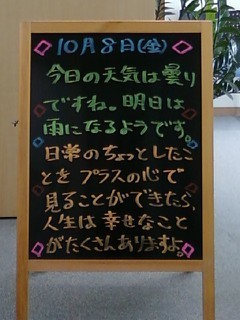 10月8日(金)
今日の天気は曇り
ですね。明日は
雨になるようです。
日常のちょっとしたこ
とをプラスの心で
見ることができたら、
人生は幸せなこと
がたくさんありますよ。